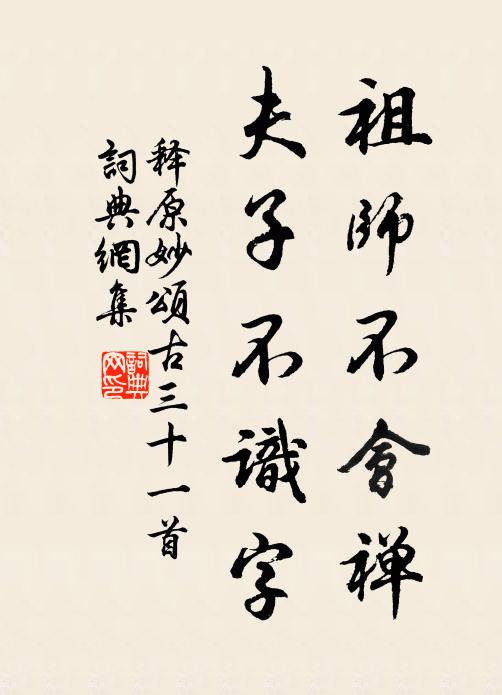 祖師不會禅
夫子不識字
释原妙頌古三十一首
詞典網集
詞典网印